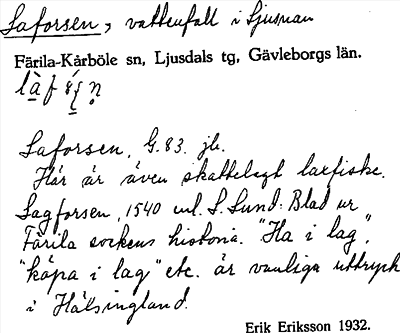 Laforsen, vattenfall i Ljusnan
Färila-Kårböle sn, Ljusdals tg, Gävleborgs län.
Laforsen, G. 83. jb.
Här är även skattelagt laxfiske.
Lagforsen, 1540 enl. L. Lund: Blad ur
Färila sockens historia. "Ha i lag",
"köpa i lag" etc. är vanliga uttryck
i Hälsingland.
Erik Eriksson 1932.